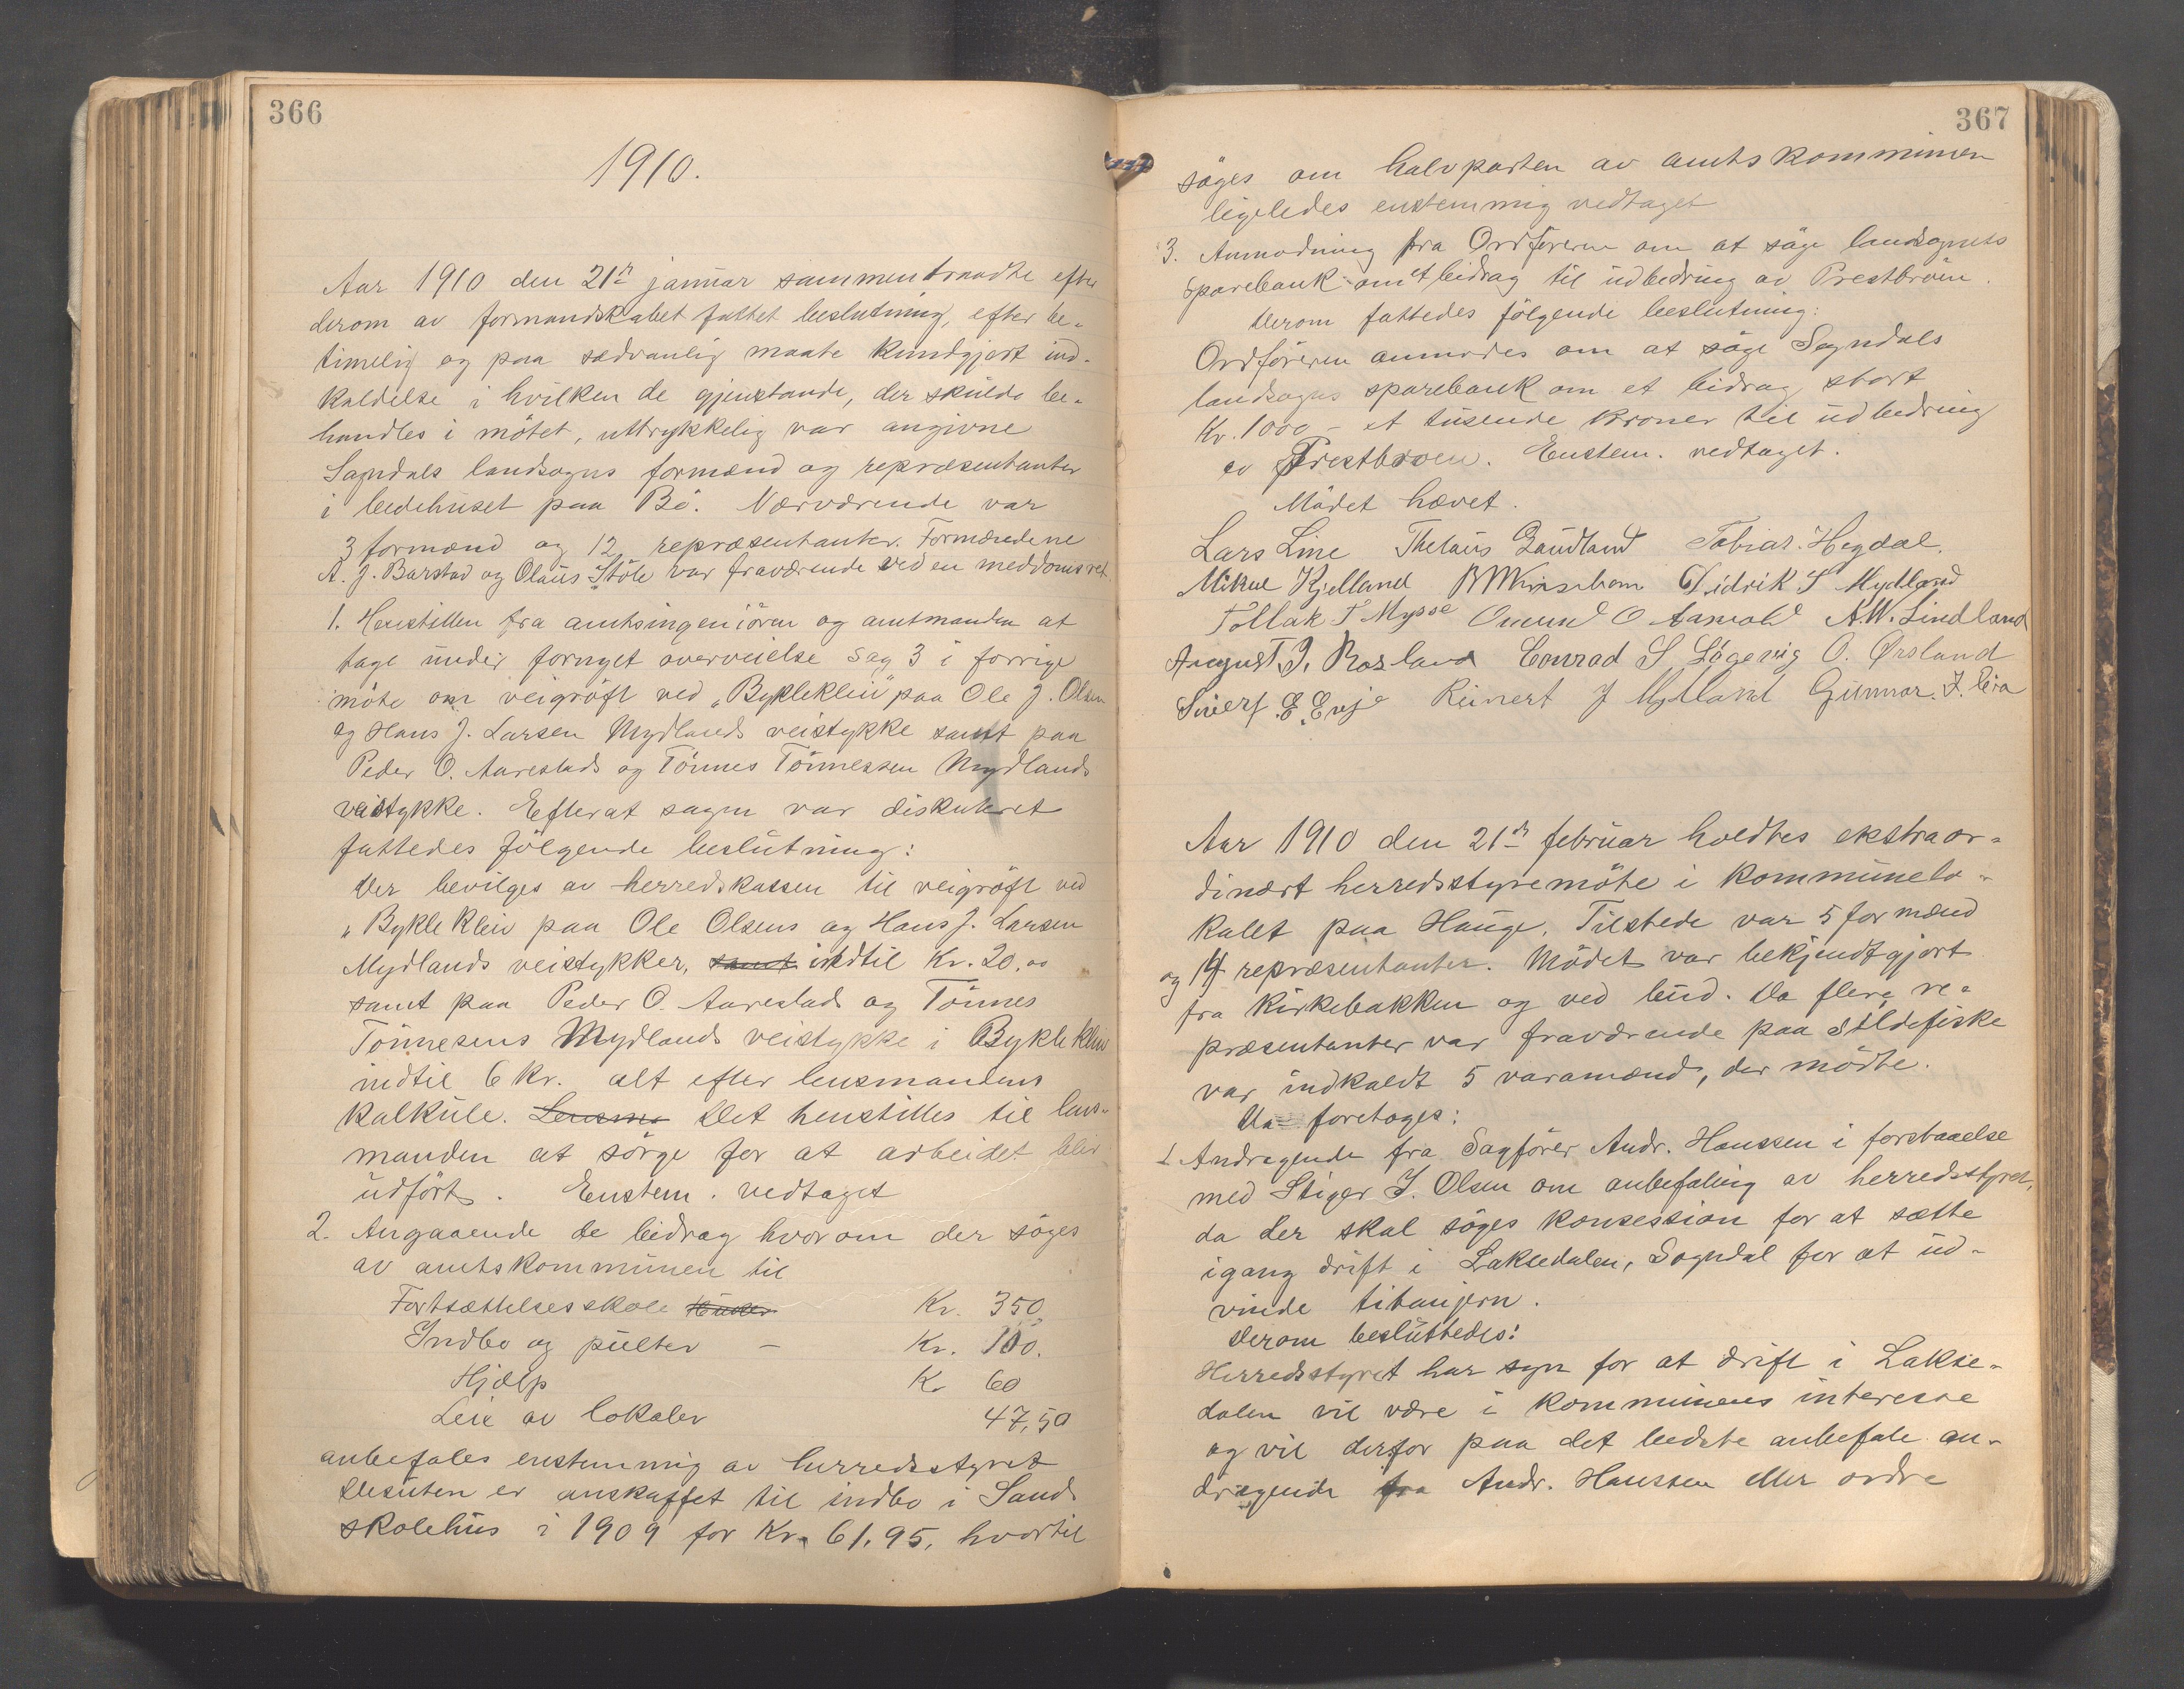 366
1910.
Aar 1910 den 21de januar sammentraadte efter
derom av formandskabet fattet beslutning, efter be-
timelig og paa sædvanlig maate kundgjort ind-
kaldelse i hvilken de gjenstande, der skulde be-
handles i mötet, uttrykkelig var angivne
Sogndals landsogns formænd og repræsentanter
i bedehuset paa Bö. Nærværende var
3 formænd og 12 repræsentanter. Formændene
A. J. Barstad og Olaus Stöle var fraværende ved en meddomsret.
1. Henstillen fra amtsingeniören og amtmanden at
tage under fornyet overveielse sag 3 i forrige
möte om veigröft ved "Bykleklein" paa Ole J. Olsen
og Hans J. Larsen Mydlands veistykke samt paa
Peder O. Aarestads og Tönnes Tönnessen Mydlands
veistykke. Efterat sagen var diskuteret
fattedes fölgende beslutning:
Der bevilges av herredskassen til veigröft ved
"Bykleklein paa Ole Olsens og Hans J. Larsen
Mydlands veistykker, samt indtil Kr. 20.00
samt paa Peder O. Aarestads og Tönnes
Tönnesens Mydlands veistykke i Bykleklein
indtil 6 kr. alt efter lensmandens
kalkule. Lensma Det henstilles til lens-
manden at sörge for at arbeidet blir
udfört. Enstem. vedtaget
2. Angaaende de bidrag hvorom der söges
av amtskommunen til
Fortsættelsesskole Kr. 350.
Indbo og pulter - Kr. 100.
Hjælp Kr 60
Leie av lokaler 47,50
anbefales enstemmig av herredsstyret
Desuten er anskaffet til indbo i Sand
skolehus i 1909 for Kr. 61.95, hvortil
367
söges om halvparten av amtskommunen
ligeledes enstemmig vedtaget
3. Anmodning fra Ordföreren om at söge landsognets
Sparebank om et bidrag til udbedring av Prestbroen.
Derom fattedes fölgende beslutning:
Ordföreren anmodes om at söge Sogndals
landsogns sparebank om et bidrag stort
Kr. 1000 - et tusende kroner til udbedring
av Prestbroen. Enstem. vedtaget.
Mödet hævet.
Lars Line Thelaus Gaudland Tobias Hegdal.
Mikal Kjelland Didrik S Mydland
Tollak T Mysse Omund O Aamodt A.W. Lindland
August J. Rosland Conrad S Lögevig O. Ørsland
Sivert E. Evje Reinert J Mydland Gunnar. J. Eia
Aar 1910 den 21de februar holdtes ekstraor-
dinært herredsstyremöte i kommunelo-
kalet paa Hauge. Tilstede var 5 formænd
og 14 repræsentanter. Mödet var bekjendtgjort
fra kirkebakken og ved bud. Da flere re-
præsentanter var fraværende paa sildefiske
var indkaldt 5 varamænd, der mödte.
Da foretoges:
1. Andragende fra Sagförer Andr. Hanssen i forstaaelse
med Stiger J. Olsen om anbefaling av herredsstyret,
da der skal söges konsession for at sætte
igang drift i Laksedalen, Sogndal for at ud-
vinde titanjern.
Derom besluttedes:
Herredsstyret har syn for at drift i Lakse-
dalen vil være i kommunens interesse
og vil derfor paa det bedste anbefale an-
dragende fra Andr. Hanssen eller ordre